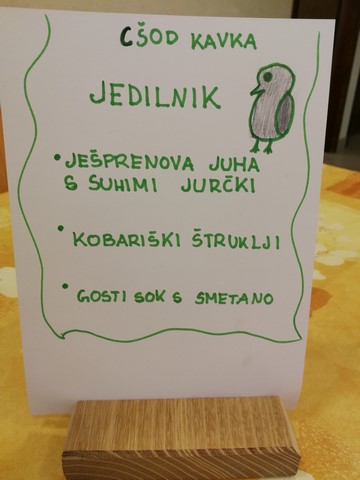 CŠOD KAVKA
JEDILNIK
• JEŠPRENOVA JUHA
S SUHIMI JURČKI
• KOBARIŠKI ŠTRUKLJI
• GOSTI SOK S SMETANO